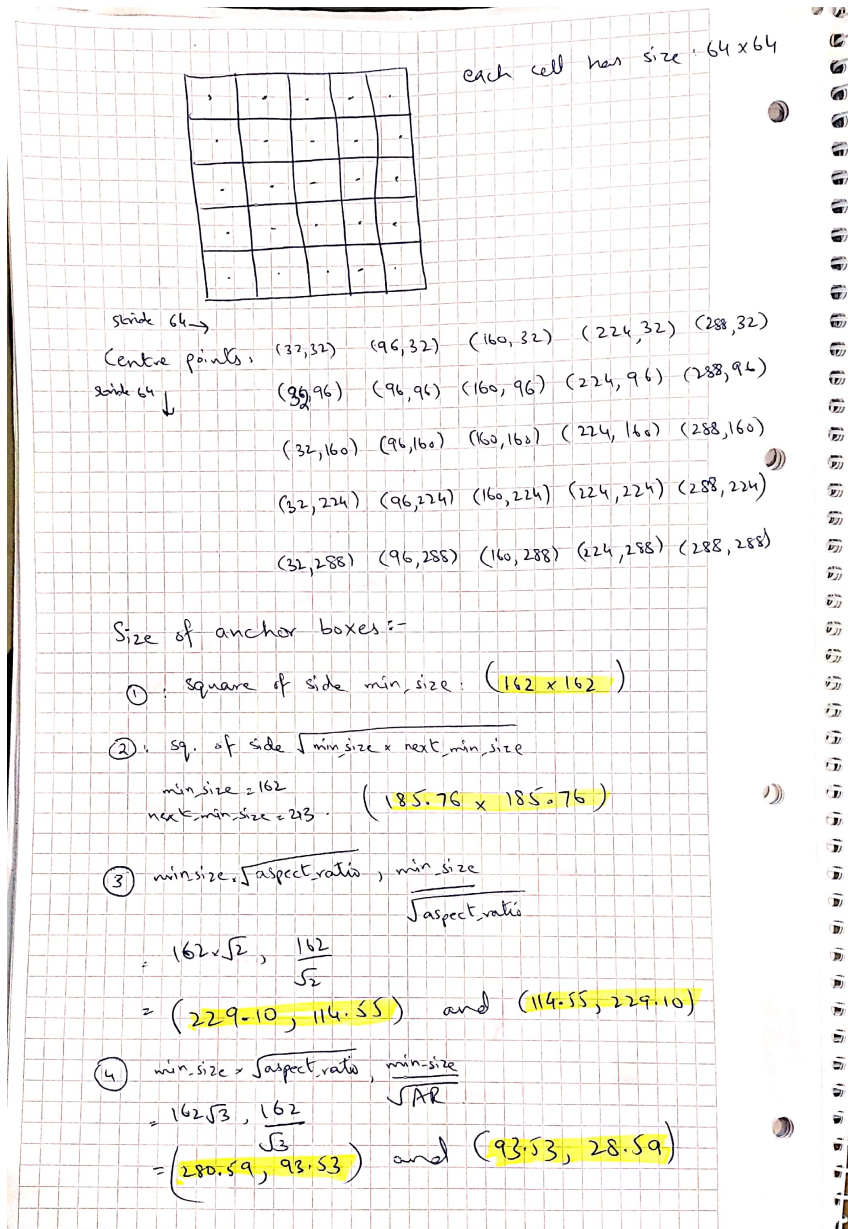 each cell has size : 64 x 64
stride 64 →
Centre points : (32,32) (96,32) (160,32) (224,32) (288,32)
stride 64 ↓ (32,96) (96,96) (160,96) (224,96) (288,96)
(32,160) (96,160) (160,160) (224,160) (288,160)
(32,224) (96,224) (160,224) (224,224) (288,224)
(32,288) (96,288) (160,288) (224,288) (288,288)
Size of anchor boxes :-
① : square of side min_size : (162 x 162)
② : sq. of side √min_size x next_min_size
min_size = 162
next_min_size = 213 . (185.76 x 185.76)
③ minsize x √aspect_ratio , min_size / √aspect_ratio
= 162 x √2 , 162 / √2
= (229.10, 114.55) and (114.55, 229.10)
④ min_size x √aspect_ratio , min-size / √AR
= 162√3 , 162 / √3
= (280.59, 93.53) and (93.53, 28.59)